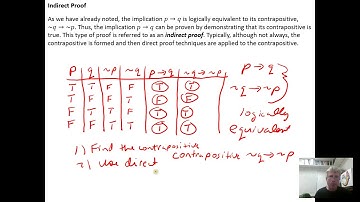 Indirect Proof
As we have already noted, the implication p → q is logically equivalent to its contrapositive,
~q → ~p. Thus, the implication p → q can be proven by demonstrating that its contrapositive is
true. This type of proof is referred to as an indirect proof. Typically, although not always, the
contrapositive is formed and then direct proof techniques are applied to the contrapositive.
p q ~p ~q p→q ~q→~p p → q
T T F F T T ~q → ~p
T F F T F F logically
F T T F T T equivalent
F F T T T T
1) Find the contrapositive contrapositive ~q→~p
2) Use direct